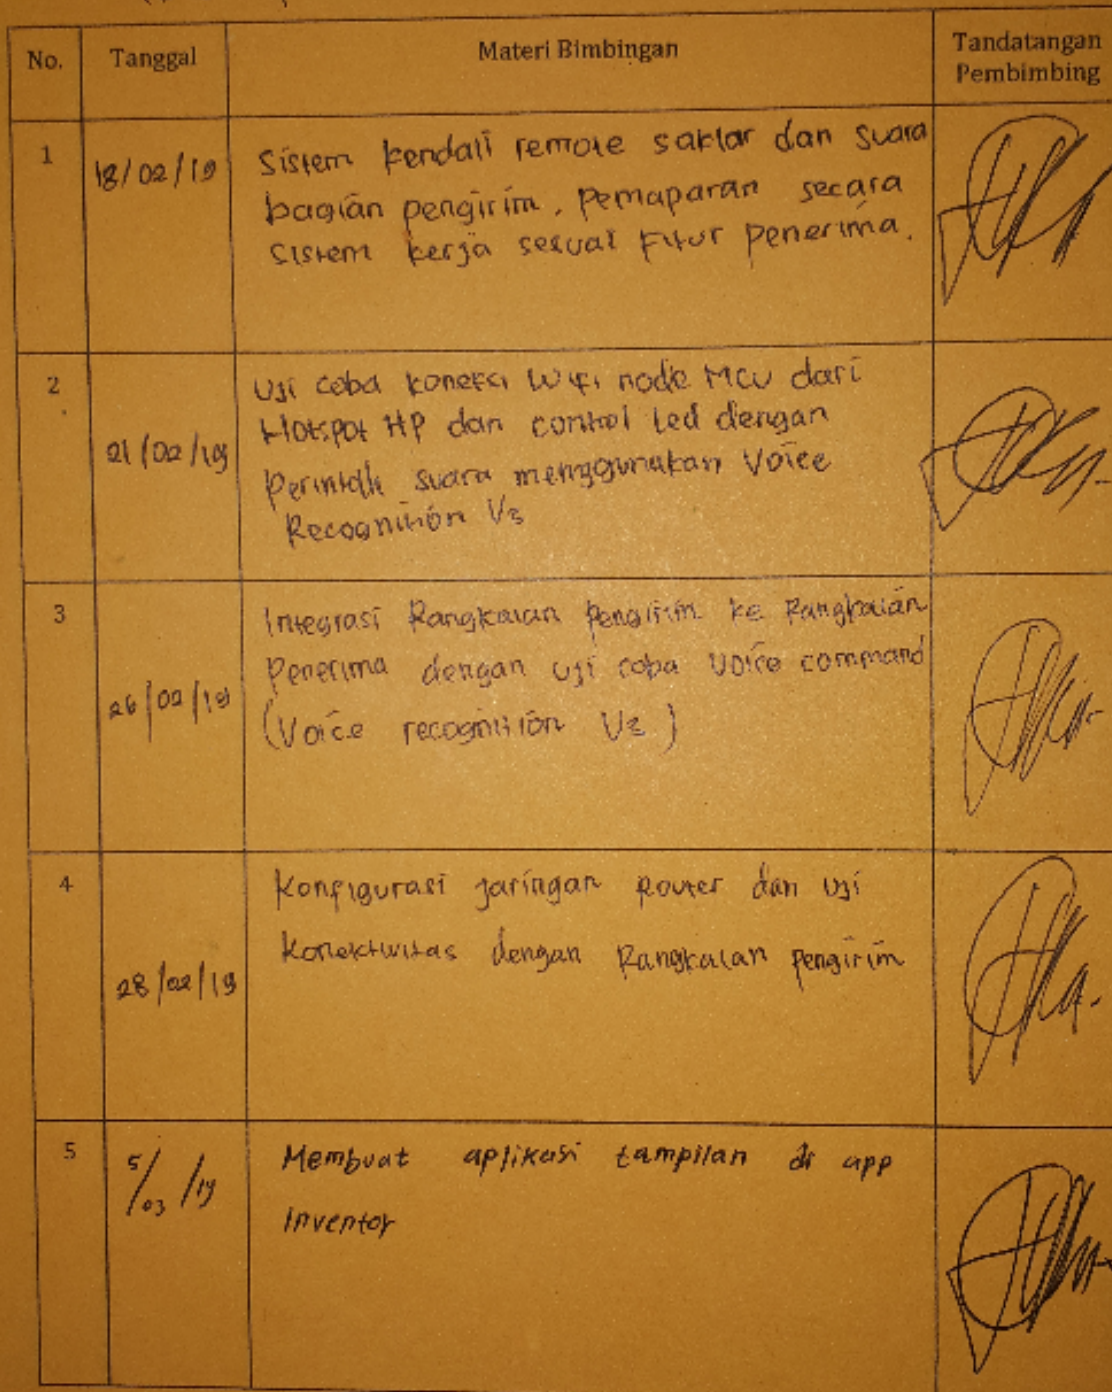 No. Tanggal Materi Bimbingan Tandatangan
Pembimbing
1 18/02/19 Sistem kendali remote saklar dan suara
bagian pengirim, Pemaparan secara
sistem kerja sesuai Fitur penerima.
2 Uji coba koneksi Wifi node MCU dari
Hotspot HP dan control Led dengan
21/02/19 Perintah suara menggunakan Voice
Recognition V3
3 Integrasi Rangkaian Pengirim ke Rangkaian
Penerima dengan uji coba voice command
26/02/19 (Voice recognition V3)
4 Konfigurasi jaringan Router dan uji
Konektivitas dengan Rangkaian pengirim
28/02/19
5 5/03/19 Membuat aplikasi tampilan di app
inventor